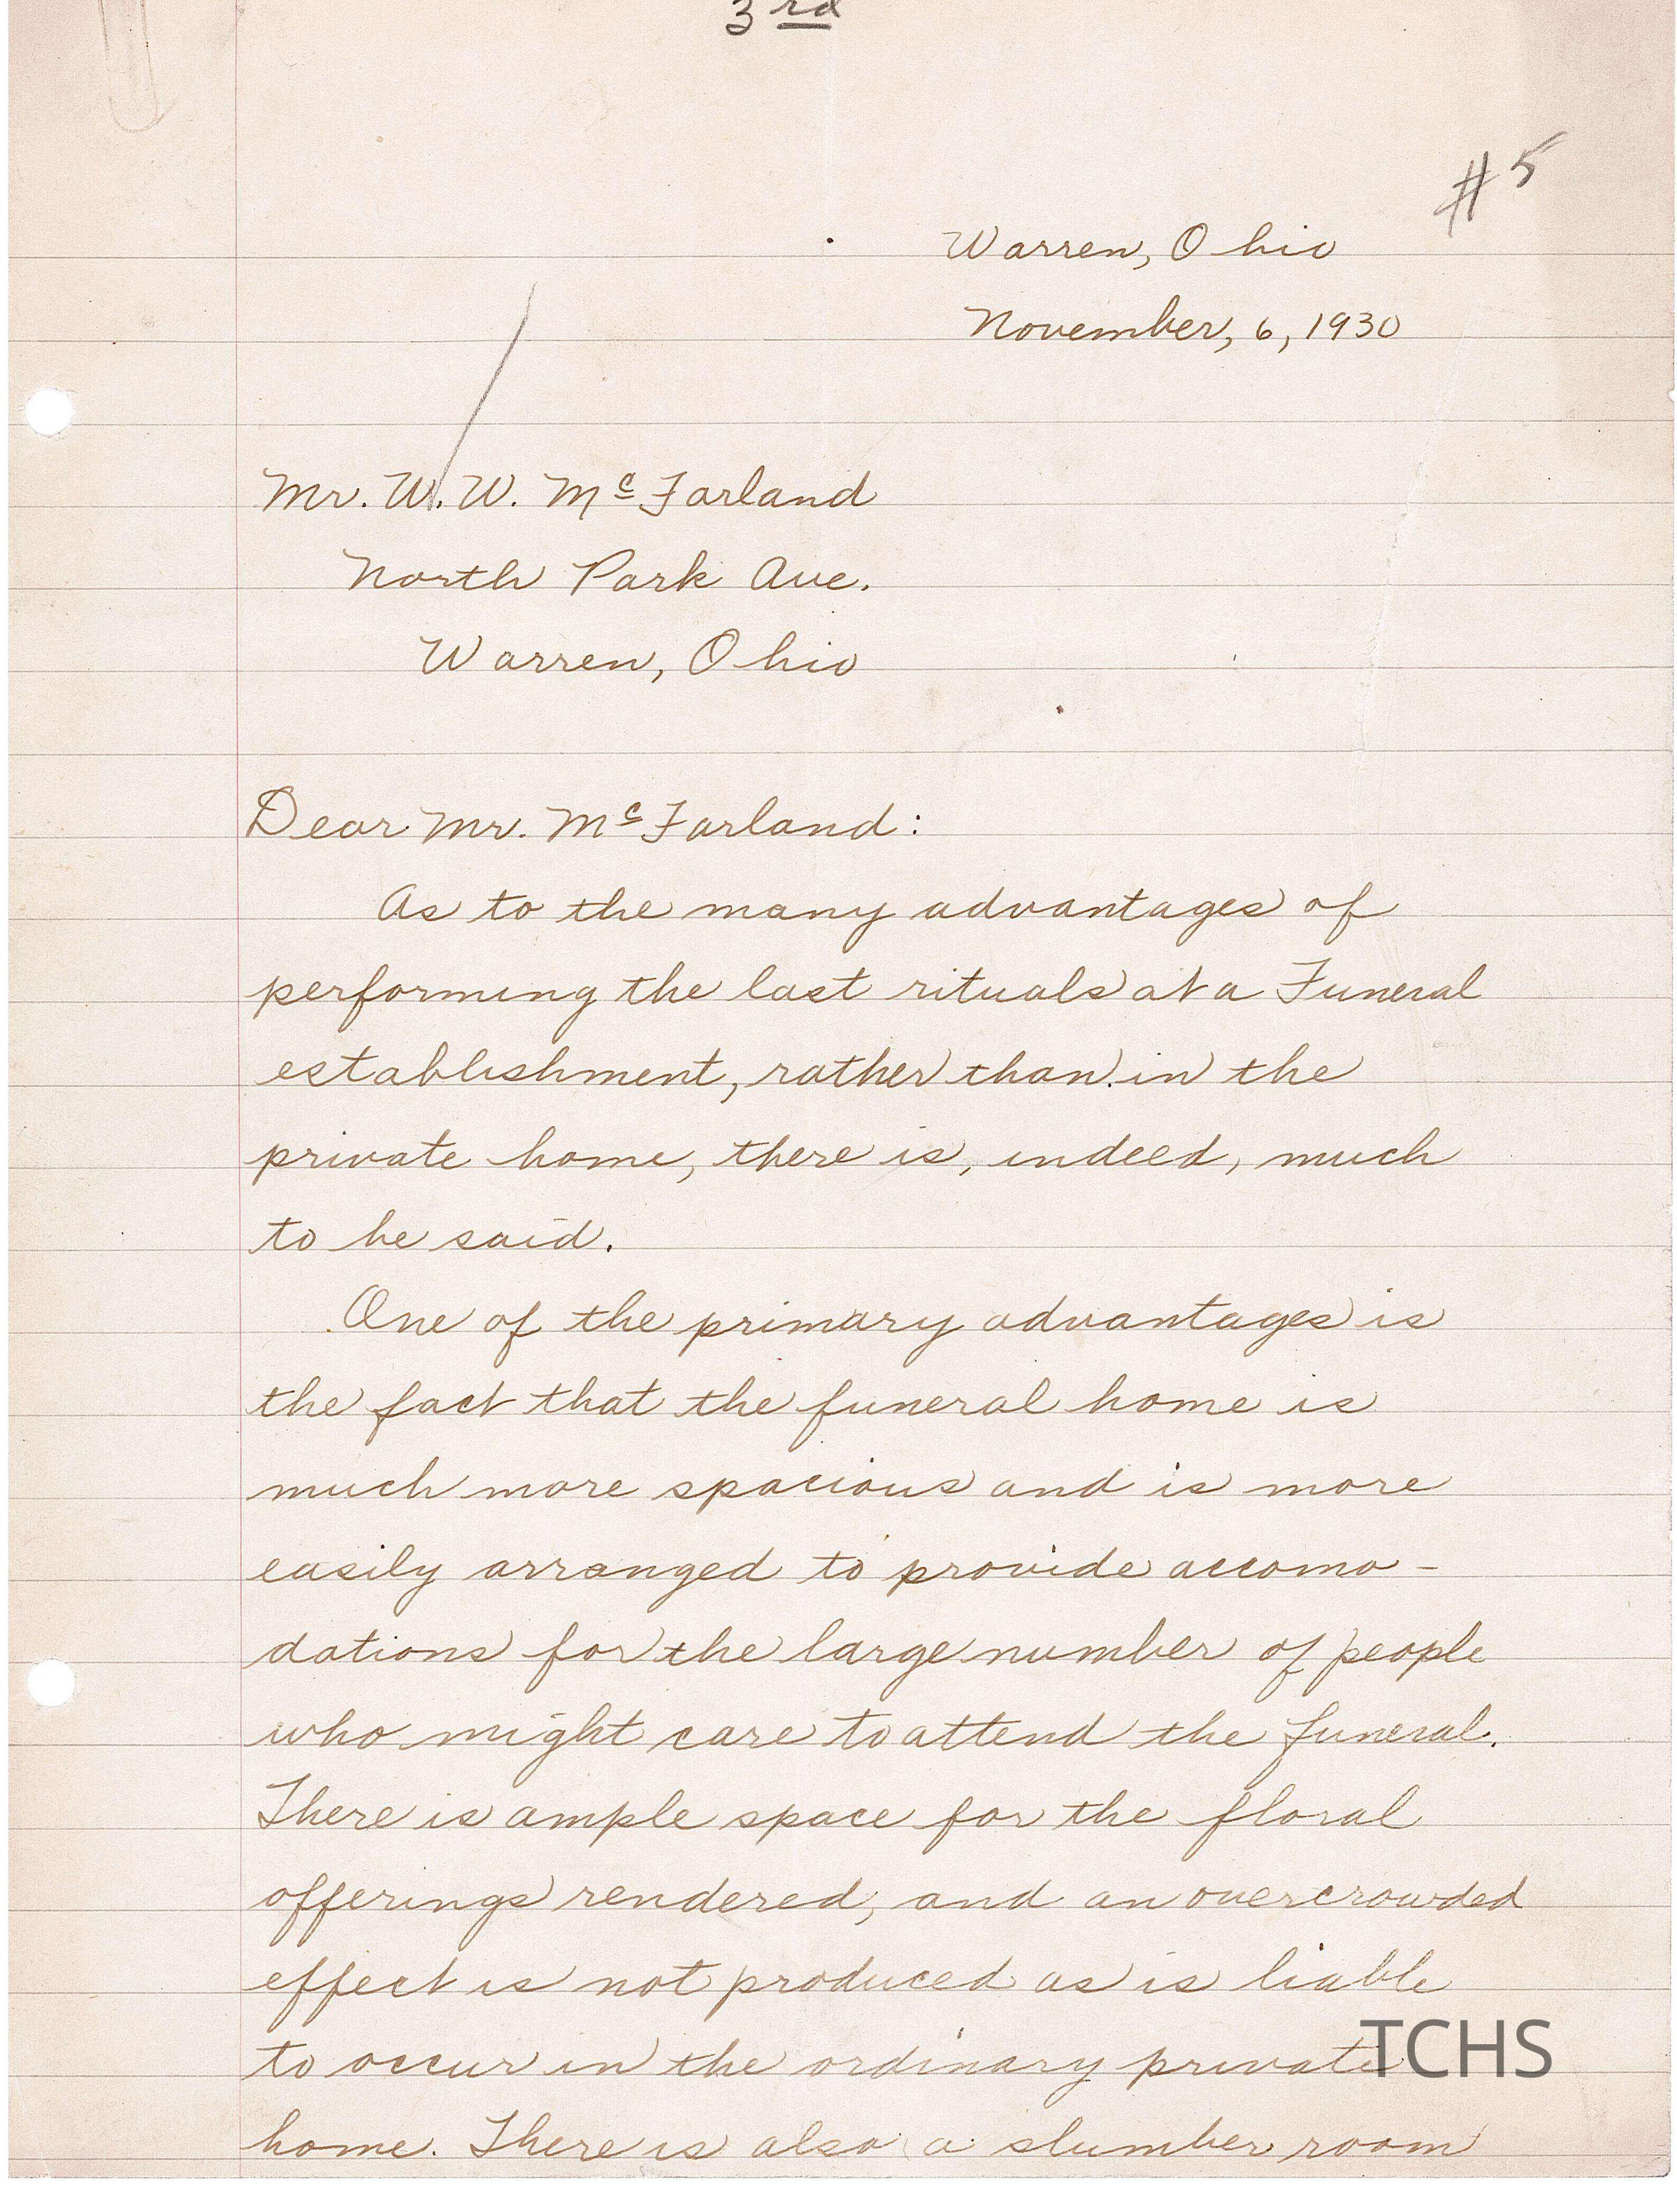 3rd
#5
Warren, Ohio
November, 6, 1930
Mr. W. W. McFarland
North Park Ave.
Warren, Ohio
Dear Mr. McFarland:
As to the many advantages of
performing the last rituals at a Funeral
establishment, rather than in the
private home, there is, indeed, much
to be said.
One of the primary advantages is
the fact that the funeral home is
much more spacious and is more
easily arranged to provide accomo-
dations for the large number of people
who might care to attend the funeral.
There is ample space for the floral
offerings rendered, and an overcrowded
effect is not produced as is liable
to occur in the ordinary private
home. There is also a slumber room
TCHS